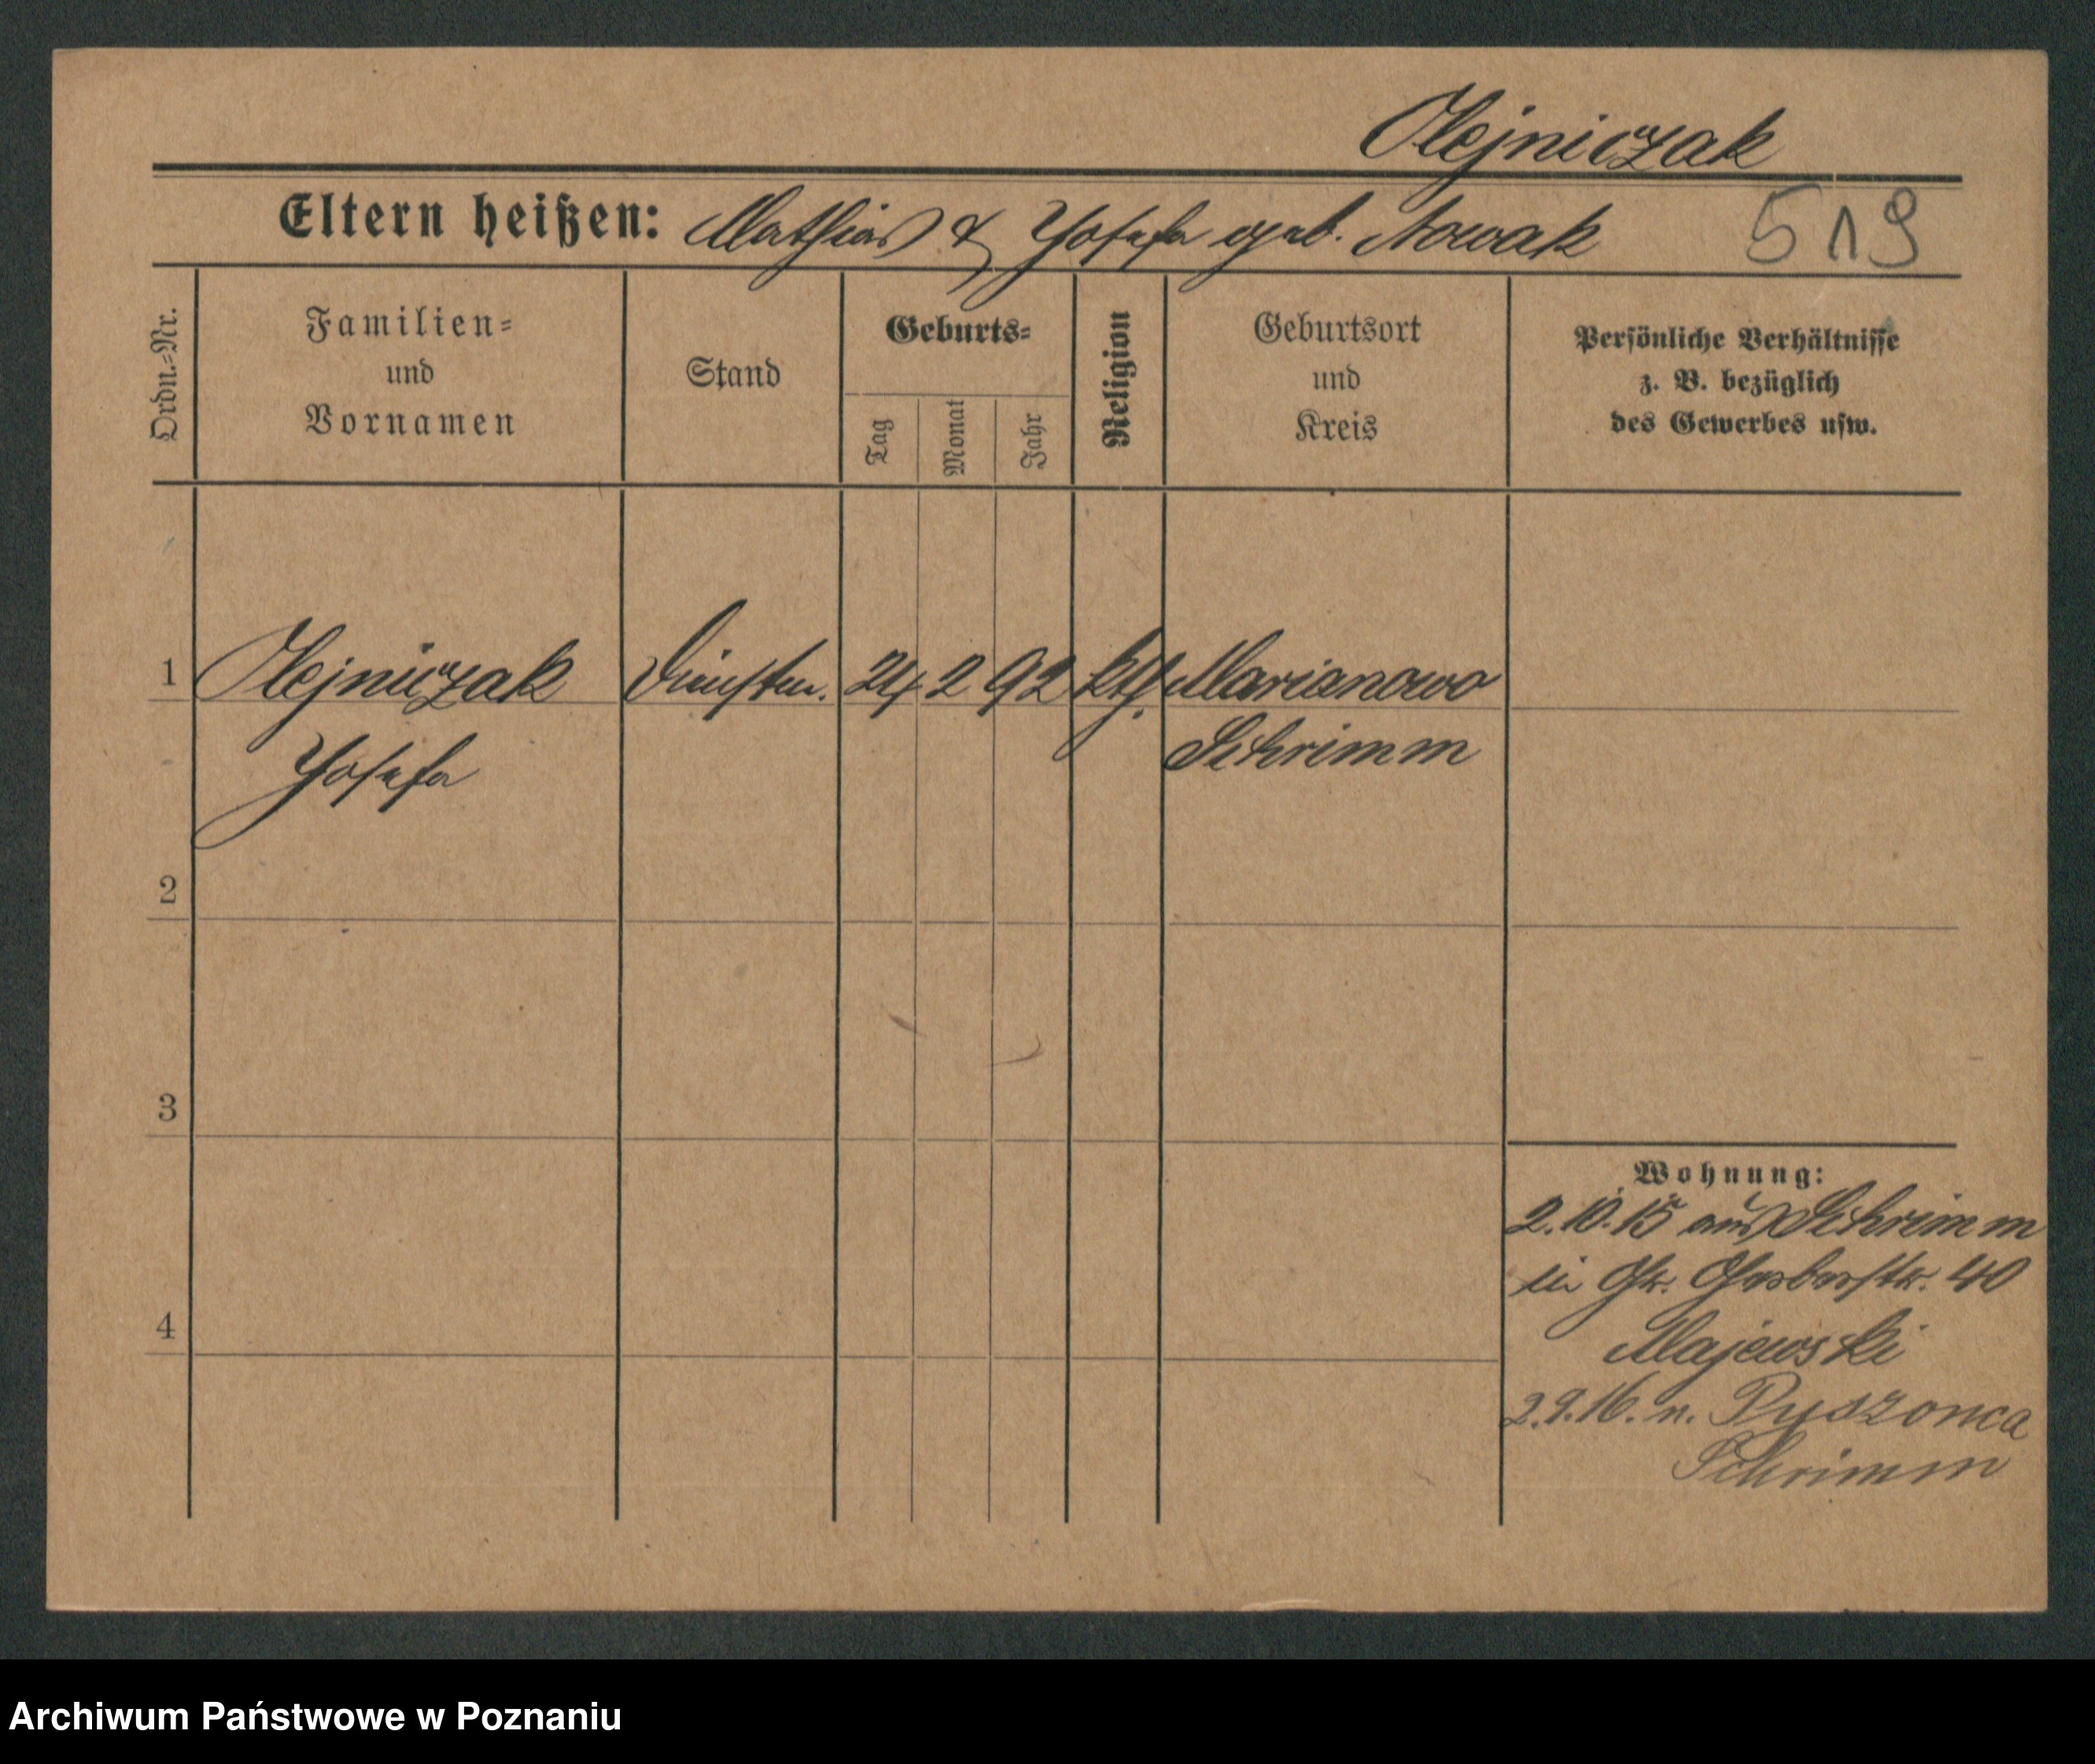 Olejniczak
Eltern heißen: Mathias & Josefa geb. Nowak 519
Ordn.=Nr.
Familien=
und
Vornamen
Stand
Geburts=
Tag
Monat
Jahr
Religion
Geburtsort
und
Kreis
Persönliche Verhältnisse
z. B. bezüglich
des Gewerbes usw.
1 Olejniczak 24 2 92 kth. Marianowo
Josefa Schrimm
2
3
4
Wohnung:
2.10.15 aus Schrimm
in Gr. Gerberstr. 40
Majewski
2.9.16. n. Pyszonca
Schrimm
Archiwum Państwowe w Poznaniu